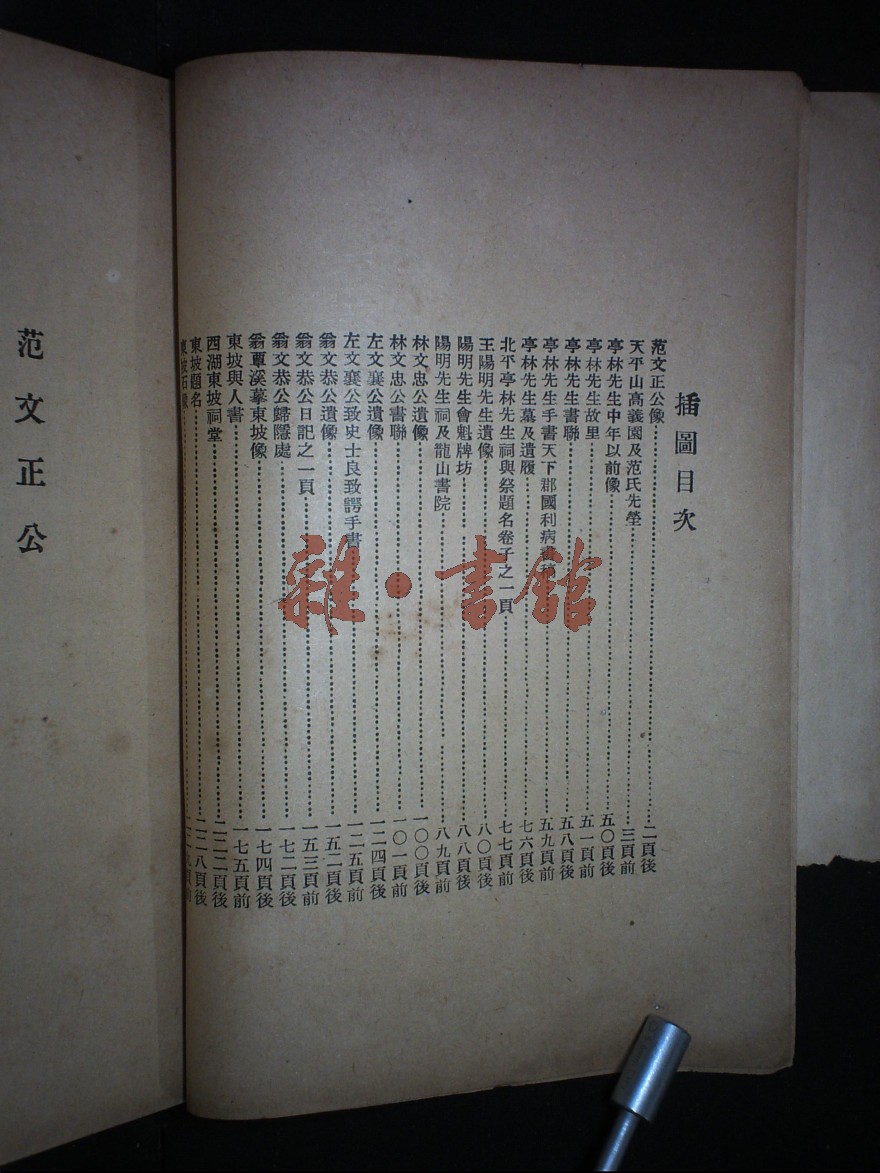 插圖目次
范文正公像……二頁後
天平山高義園及范氏先塋……三頁前
亭林先生中年以前像……五〇頁後
亭林先生故里……五一頁前
亭林先生書聯……五八頁後
亭林先生手書天下郡國利病書……五九頁前
亭林先生墓及遺履……七六頁後
北平亭林先生祠與祭題名卷子之一頁……七七頁前
王陽明先生遺像……八〇頁後
陽明先生會魁牌坊……八八頁後
陽明先生祠及龍山書院……八九頁前
林文忠公遺像……一〇〇頁後
林文忠公書聯……一〇一頁前
左文襄公遺像……一二四頁後
左文襄公致史士良致諤手書……一二五頁前
翁文恭公遺像……一五二頁後
翁文恭公日記之一頁……一五三頁前
翁文恭公歸隱處……一七二頁後
翁覃溪摹東坡像……一七四頁後
東坡與人書……一七五頁前
西湖東坡祠堂……二二二頁後
東坡題名……二二八頁後
東坡石像……頁前
范文正公
雜·書館